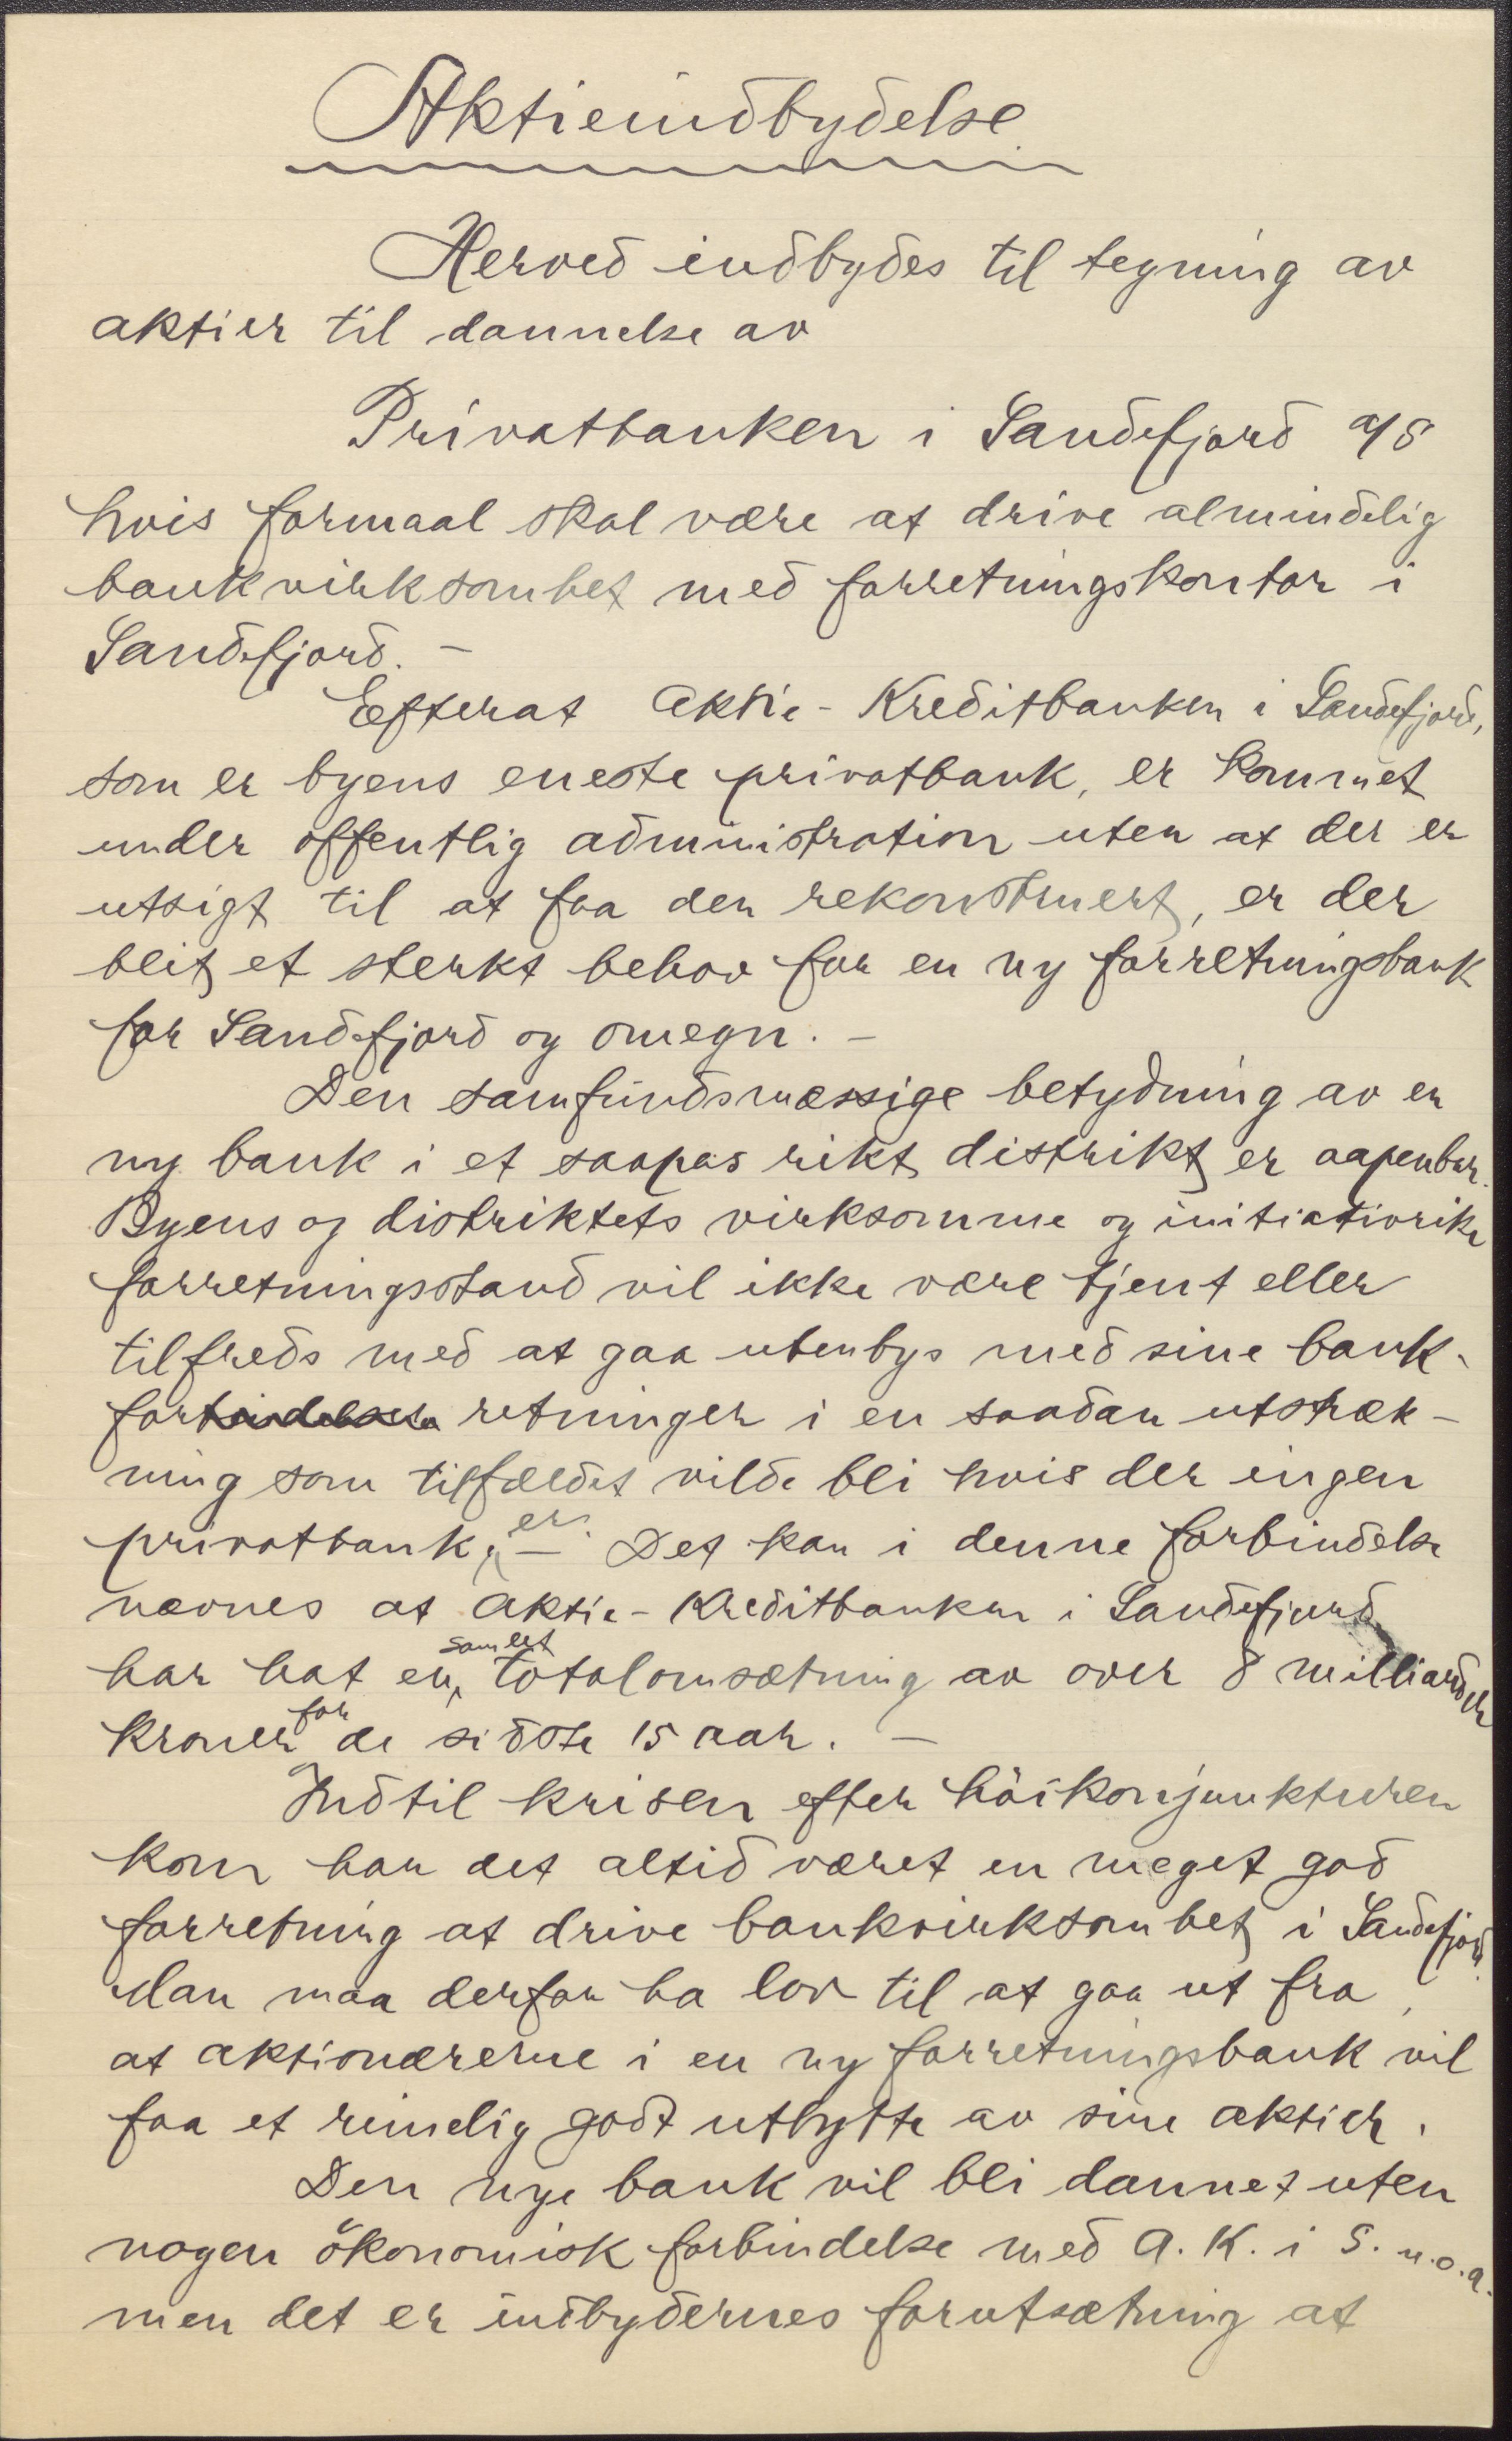 Aktieindbydelse
Herved indbydes til tegning av
aktier til dannelse av
Privatbanken i Sandefjord a/s
hvis formaal skal være at drive almindelig
bankvirksomhet med forretningskontor i
Sandefjord. –
Efterat Aktie-Kreditbanken i Sandefjord,
som er byens eneste privatbank, er kommet
under offentlig administration uten at der er
utsigt til at faa den rekonstruert, er der
blit et sterkt behov for en ny forretningsbank
for Sandefjord og omegn. –
Den samfundsmæssige betydning av en
ny bank i et saapas rikt distrikt er aapenbar.
Byens og distriktets virksomme og initiativrike
forretningsstand vil ikke være tjent eller
tilfreds med at gaa utenbys med sine bank-
forbindelser retninger i en saadan utstræk-
ning som tilfældet vilde bli hvis der ingen
privatbank er. – Det kan i denne forbindelse
nævnes at Aktie-Kreditbanken i Sandefjord
har hat en samlet totalomsætning av over 8 milliarder
kroner for de sidste 15 aar. –
Indtil krisen efter höikonjunkturen
kom har det altid været en meget god
forretning at drive bankvirksomhet i Sandefjord.
Man maa derfor ha lov til at gaa ut fra,
at aktionærerne i en ny forretningsbank vil
faa et rimelig godt utbytte av sine aktier.
Den nye bank vil bli dannet uten
nogen ökonomisk forbindelse med A. K. i S. u.o.a.
men det er indbydernes forutsætning at